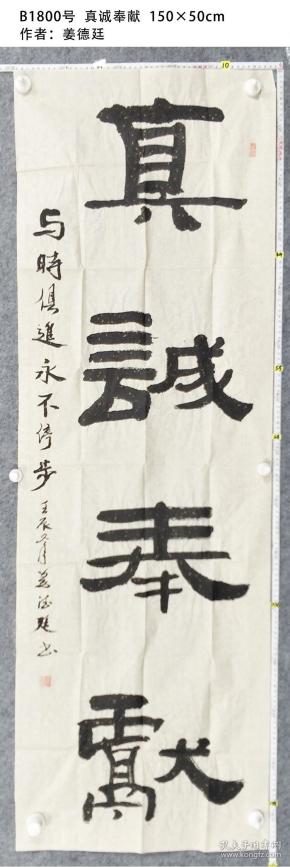 B1800号 真诚奉献 150×50cm
作者：姜德廷
真誠奉獻
与時俱進永不停步
壬辰 月姜德廷书
孔夫子旧书网
kongfz.com